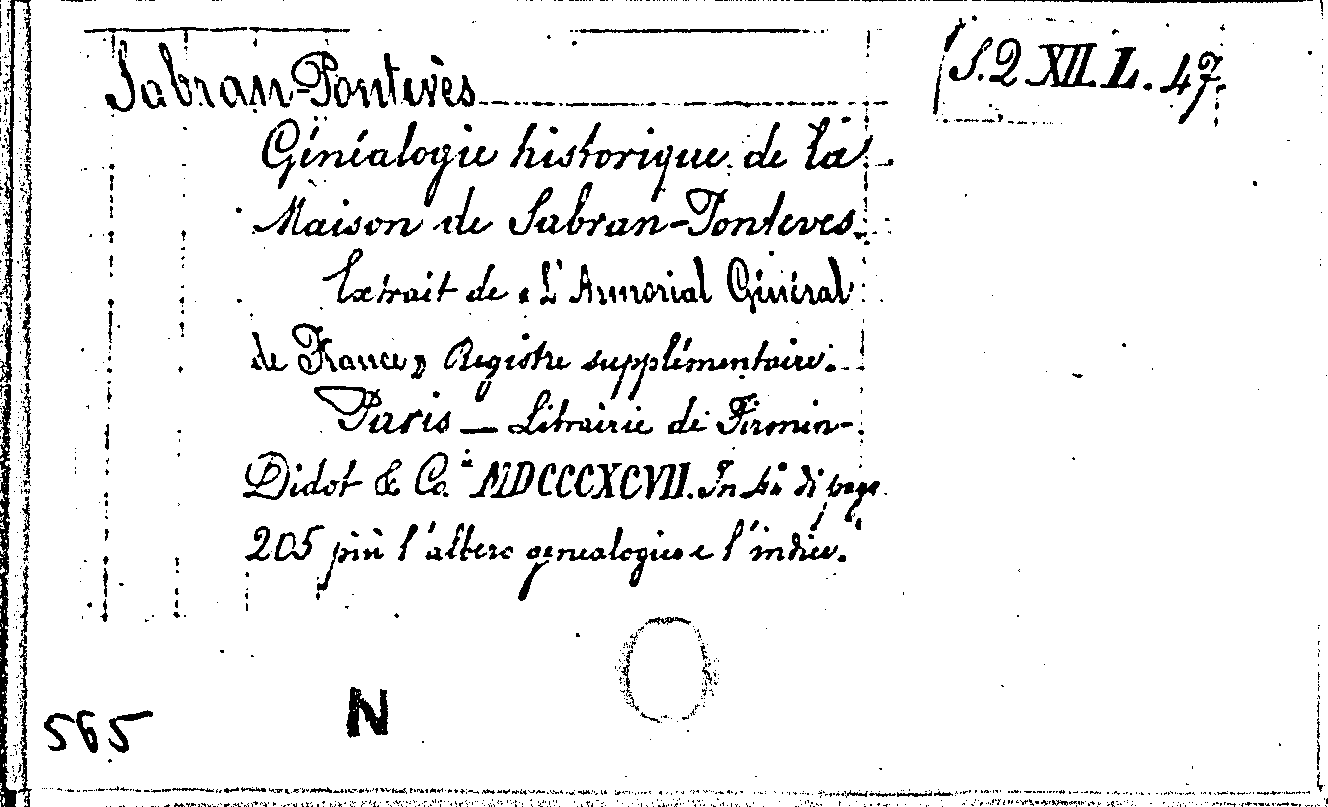 Sabran-Pontevès
S.2 XII. L. 47.
Généalogie historique de la
Maison de Sabran-Ponteves.
Extrait de « L'Armorial Général
de France » Registre supplémentaire.
Paris — Librairie de Firmin-
Didot & C. ie MDCCCXCVII. In di pagg.
205 più l'albero genealogico e l'indice.
565
N